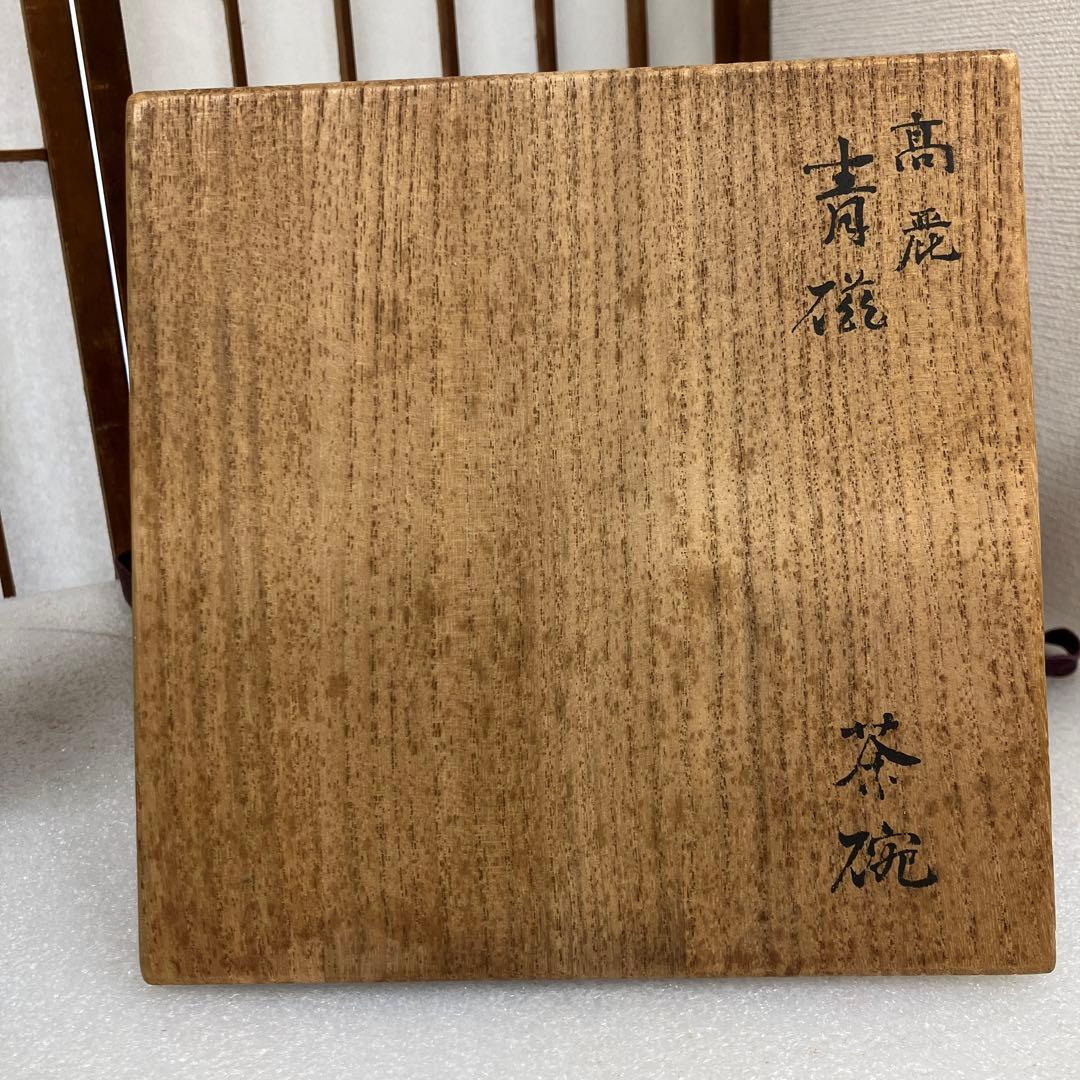 髙麗
青磁
茶碗